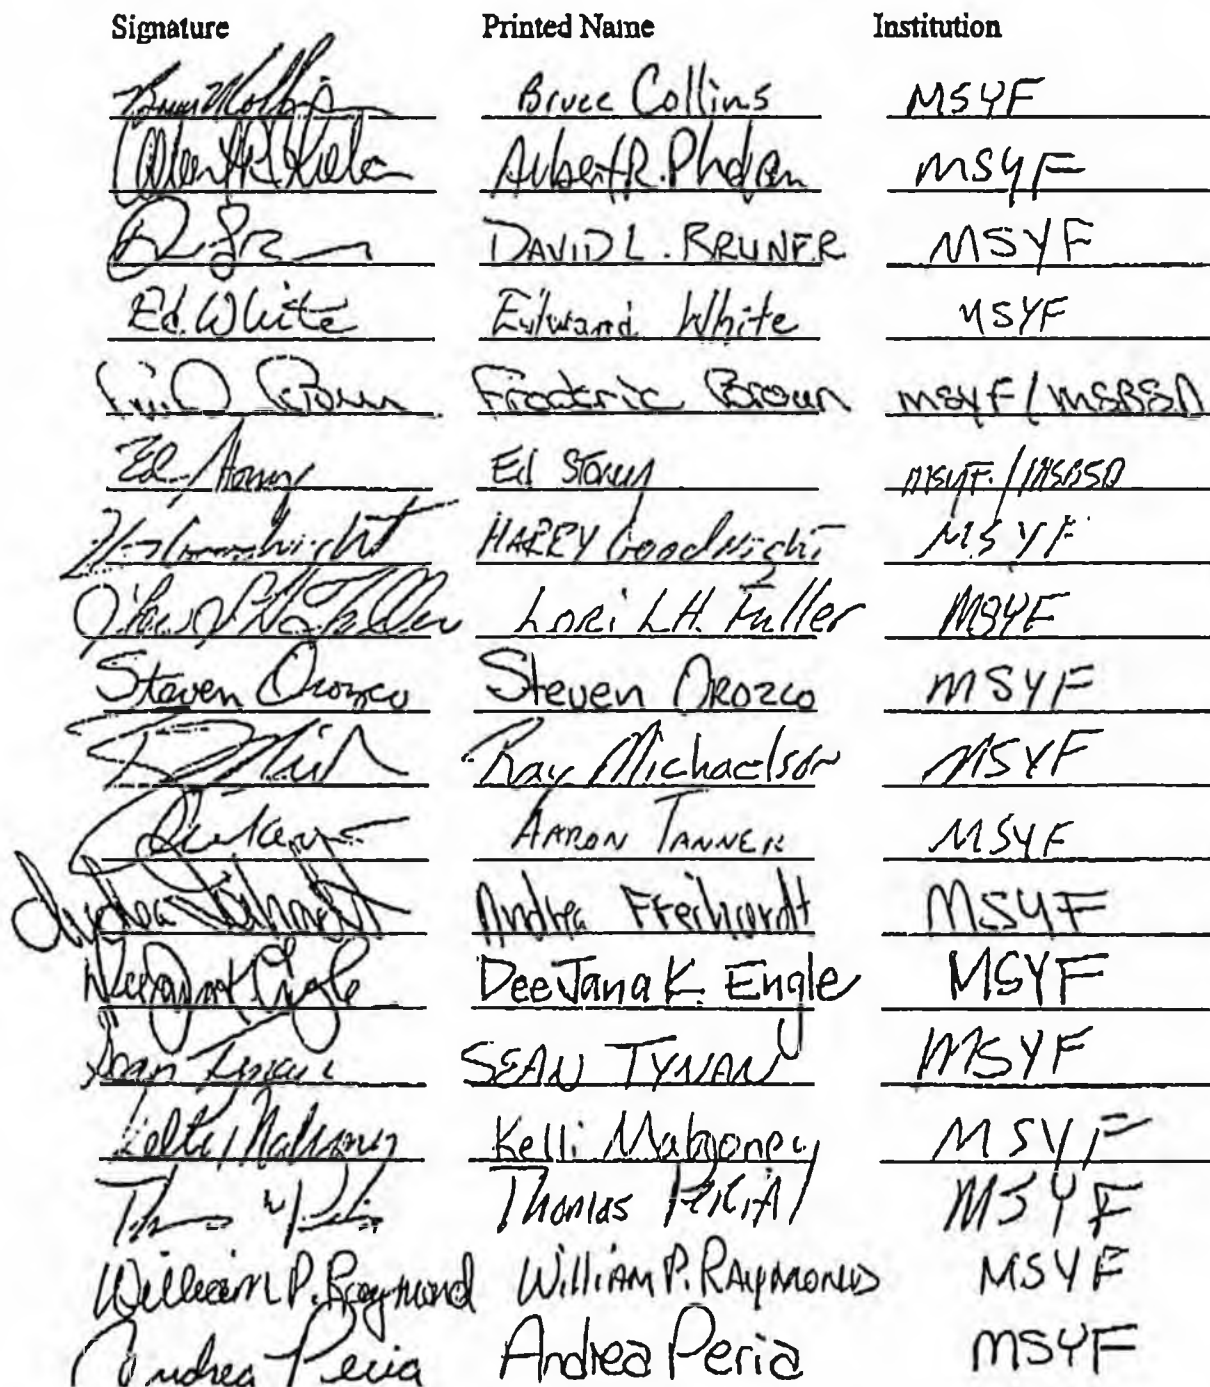 Signature Printed Name Institution
Bruce Collins MSYF
Albert R. Phelan MSYF
DAVID L. BRUNER MSYF
Ed. White Edward White MSYF
Brown Frederic Brown MSYF/MSBSD
Ed Ed Storey MSYF/MSBSD
HARRY Goodnight MSYF
Lori L.H. Fuller MSYF
Steven Orozco Steven Orozco MSYF
Ray Michaelson MSYF
AARON TANNER MSYF
Andrea Andrea MSYF
DeeJana K. Engle MSYF
Sean Tynan SEAN TYNAN MSYF
Kelli Mahoney MSYF
Thomas MSYF
William P. Raymond WilliAM P. RAYMOND MSYF
Andrea Peria Andrea Peria MSYF